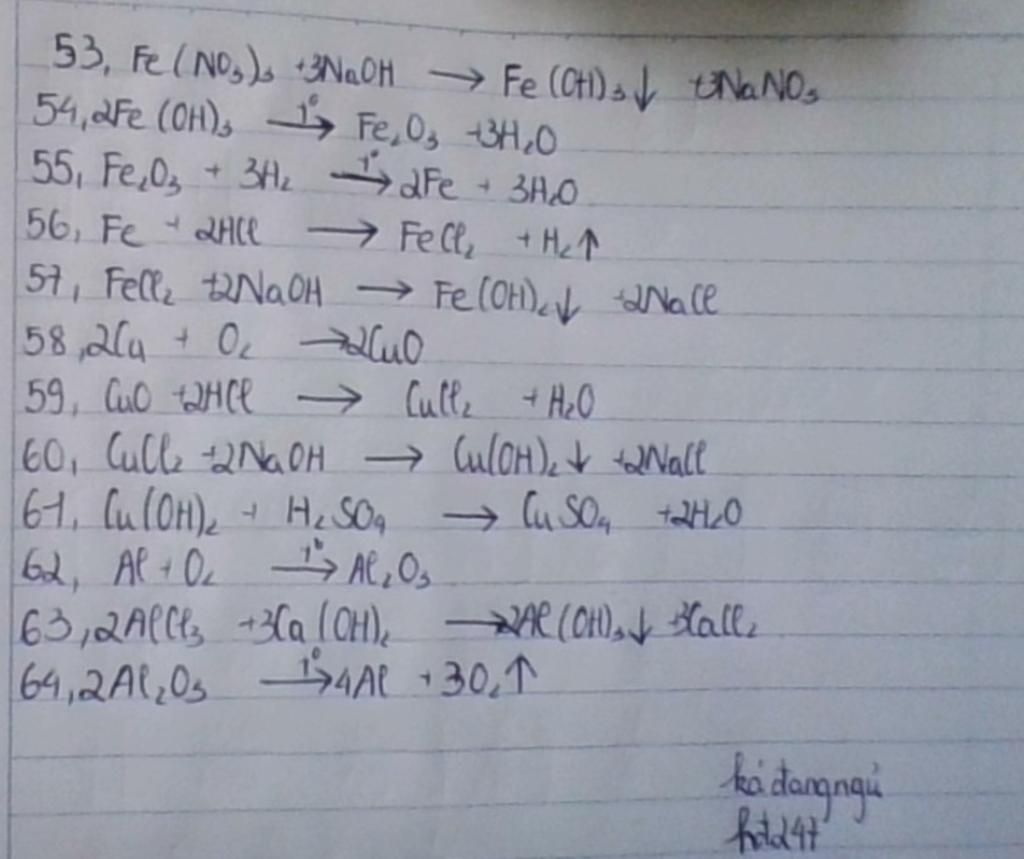 53, Fe(NO₃)₃ +3NaOH → Fe(OH)₃↓ +3NaNO₃
54, 2Fe(OH)₃ —t°→ Fe₂O₃ +3H₂O
55, Fe₂O₃ + 3H₂ —t°→ 2Fe + 3H₂O
56, Fe + 2HCl → FeCl₂ + H₂↑
57, FeCl₂ +2NaOH → Fe(OH)₂↓ +2NaCl
58, 2Cu + O₂ → 2CuO
59, CuO +2HCl → CuCl₂ + H₂O
60, CuCl₂ +2NaOH → Cu(OH)₂↓ +2NaCl
61, Cu(OH)₂ + H₂SO₄ → CuSO₄ +2H₂O
62, Al + O₂ —t°→ Al₂O₃
63, 2AlCl₃ +3Ca(OH)₂ → 2Al(OH)₃↓ 3CaCl₂
64, 2Al₂O₃ —t°→ 4Al + 3O₂↑
ká đang ngủ
hd247